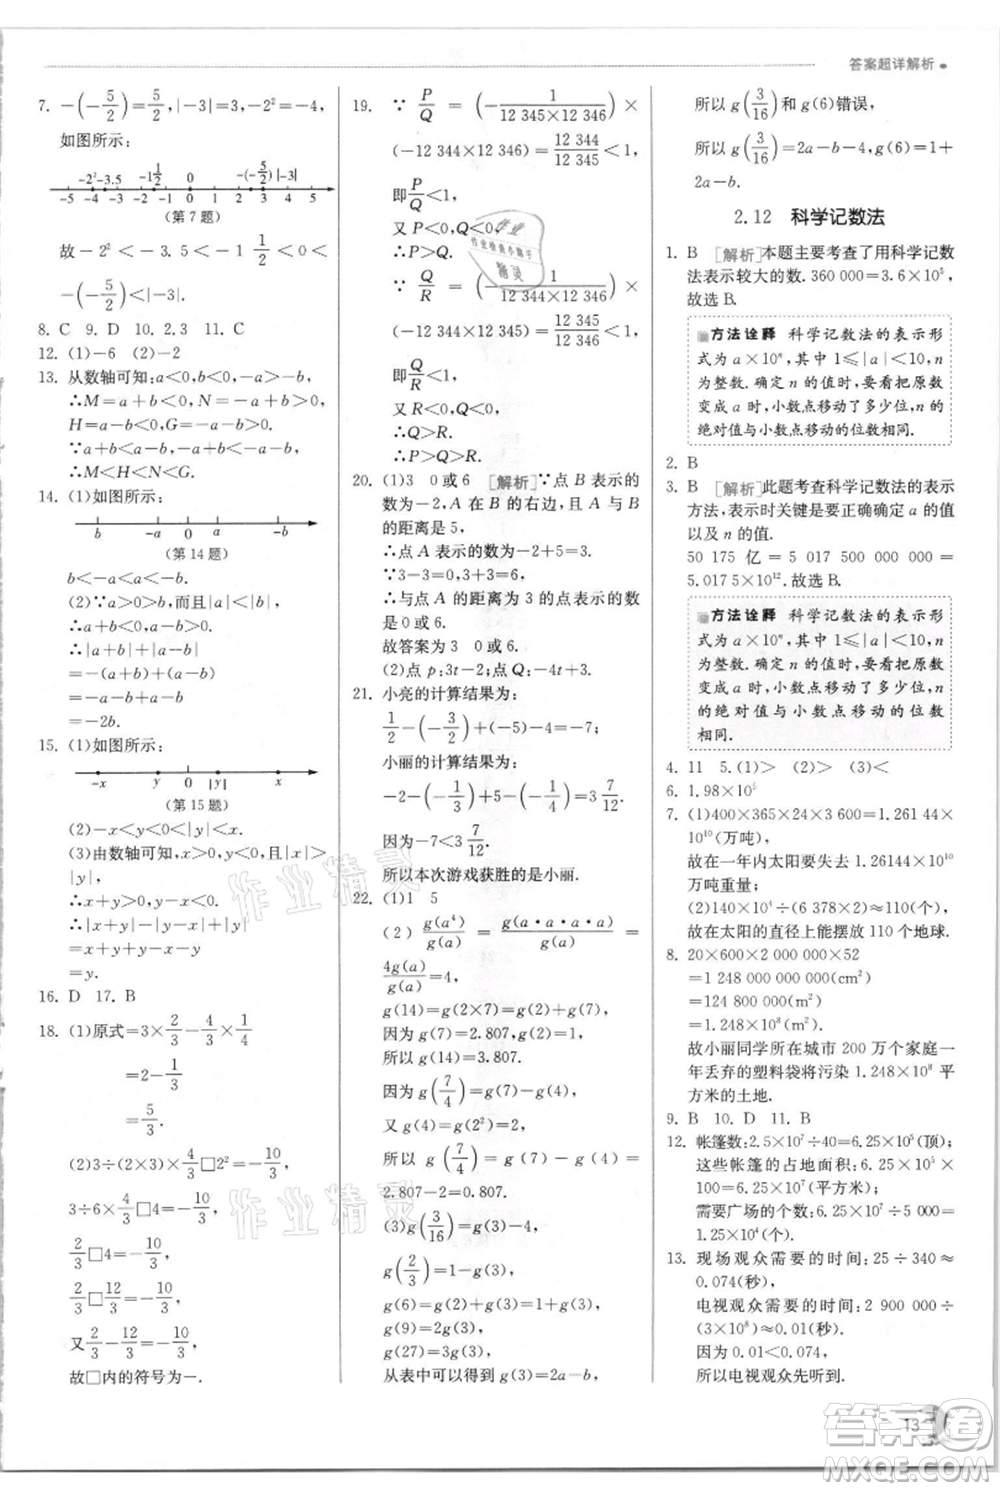 答案超详解析
7. -(-5/2)=5/2,|-3|=3,-2²=-4,
如图所示:
-2² -3.5 -1 1/2 0 -(-5/2) |-3|
-5 -4 -3 -2 -1 0 1 2 3 4 5
(第 7 题)
故 -2²<-3.5<-1 1/2<0<
-(-5/2)<|-3|.
8. C 9. D 10. 2.3 11. C
12. (1)-6 (2)-2
13. 从数轴可知:a<0,b<0,-b>-a>0,
∴M=a+b<0,N=-a+b<0,
H=a-b<0,G=-a-b>0.
∵a+b<a-b<-a+b<-a-b,
∴M<H<N<G.
14. (1)如图所示:
b -a 0 a -b
(第 14 题)
b<-a<a<-b.
∴a+b<0,a-b>0.
∴|a+b|+|a-b|
=-(a+b)+(a-b)
=-a-b+a-b
=-2b.
15. (1)如图所示:
-x y 0 |y| x
(第 15 题)
(2)-x<y<0<|y|<x.
(3)由数轴可知,x>0,且|x|>
|y|,
∴x+y>0,y-x<0.
∴|x+y|-|y-x|+|y|
=x+y+y-x-y
=y.
16. D 17. B
18. (1)原式=3×2/3-4/3×1/4
=2-1/3
=5/3.
(2)3÷(2×3)×4/3□2²=-10/3,
3÷6×4/3□4=-10/3,
2/3□4=-10/3,
2/3□12/3=-10/3,
又2/3-12/3=-10/3,
故□内的符号为-.
19. ∵ P/Q = (-1/(12 345×12 346))×
(-12 344×12 346)=12 344/12 345<1,
即P/Q<1,
又 P<0,Q<0,
∴P>Q.
∵ Q/R = (-1/(12 346×12 346))×
(-12 345×12 345)=12 345/12 346<1,
即Q/R<1,
又 Q<0,R<0,
∴Q>R.
∴P>Q>R.
20. (1)3 0或6 [解析]∵点 B 表示的
数为-2,A 在 B 的右边,且 A 与 B
的距离是 5,
∴点 A 表示的数为-2+5=3.
∵3-3=0,3+3=6,
∴与点 A 的距离为 3 的点表示的数
为 0 或 6.
故答案为 3 0或6.
(2)点 p:3t-2;点 Q:-4t+3.
21. 小亮的计算结果为:
1/2-(-3/2)+(-5)-4=-7;
小丽的计算结果为:
-2-(-1/3)+5-(-1/4)=3 7/12.
因为-7<3 7/12.
所以本次游戏获胜的是小丽.
22. (1)1 5
(2) g(a⁴)/g(a) = g(a·a·a·a)/g(a) =
4g(a)/g(a)=4,
g(14)=g(2×7)=g(2)+g(7),
因为 g(7)=2.807,g(2)=1,
所以 g(14)=3.807.
因为 g(7/4)=g(7)-g(4),
又 g(4)=g(2²)=2,
所以 g(7/4)=g(7)-g(4)=
2.807-2=0.807.
(3)g(3/16)=g(3)-4g(2),
g(2/3)=1-g(3),
g(6)=g(2)+g(3)=1+g(3),
g(9)=2g(3),
g(27)=3g(3),
从表中可以得到 g(3)=2a-b,
所以 g(3/16)和 g(6)错误,
所以 g(3/16)=2a-b-4,g(6)=1+
2a-b.
2.12 科学记数法
1. B [解析]本题主要考查了用科学记数
法表示较大的数. 360 000=3.6×10⁵,
故选 B.
方法诠释 科学记数法的表示形
式为 a×10ⁿ,其中 1≤|a|<10,n
为整数. 确定 n 的值时,要看把原数
变成 a 时,小数点移动了多少位,n 的
绝对值与小数点移动的位数相同.
2. B
3. B [解析]此题考查科学记数法的表示
方法,表示时关键是要正确确定 a 的值
以及 n 的值.
50 175 亿 = 5 017 500 000 000 =
5.017 5×10¹². 故选 B.
方法诠释 科学记数法的表示形
式为 a×10ⁿ,其中 1≤|a|<10,n
为整数. 确定 n 的值时,要看把原数
变成 a 时,小数点移动了多少位,n
的绝对值与小数点移动的位数
相同.
4. 11 5. (1)> (2)> (3)<
6. 1.98×10⁵
7. (1)400×365×24×3 600=1.261 44×
10¹⁰(万吨),
故在一年内太阳要失去 1.26144×10¹⁰
万吨重量;
(2)140×10⁴÷(6 378×2)≈110(个),
故在太阳的直径上能摆放 110 个地球.
8. 20×600×2 000 000×52
=1 248 000 000 000(cm²)
=124 800 000(m²)
=1.248×10⁸(m²).
故小丽同学所在城市 200 万个家庭一
年丢弃的塑料袋将污染 1.248×10⁸ 平
方米的土地.
9. B 10. D 11. B
12. 帐篷数:2.5×10⁷÷40=6.25×10⁵(顶);
13. 现场观众需要的时间:25÷340≈
0.074(秒),
电视观众需要的时间:2 900 000÷
(3×10⁸)≈0.01(秒).
因为 0.01<0.074,
所以电视观众先听到.
13
作业精灵
作业精灵
答案圈
MXQE.COM